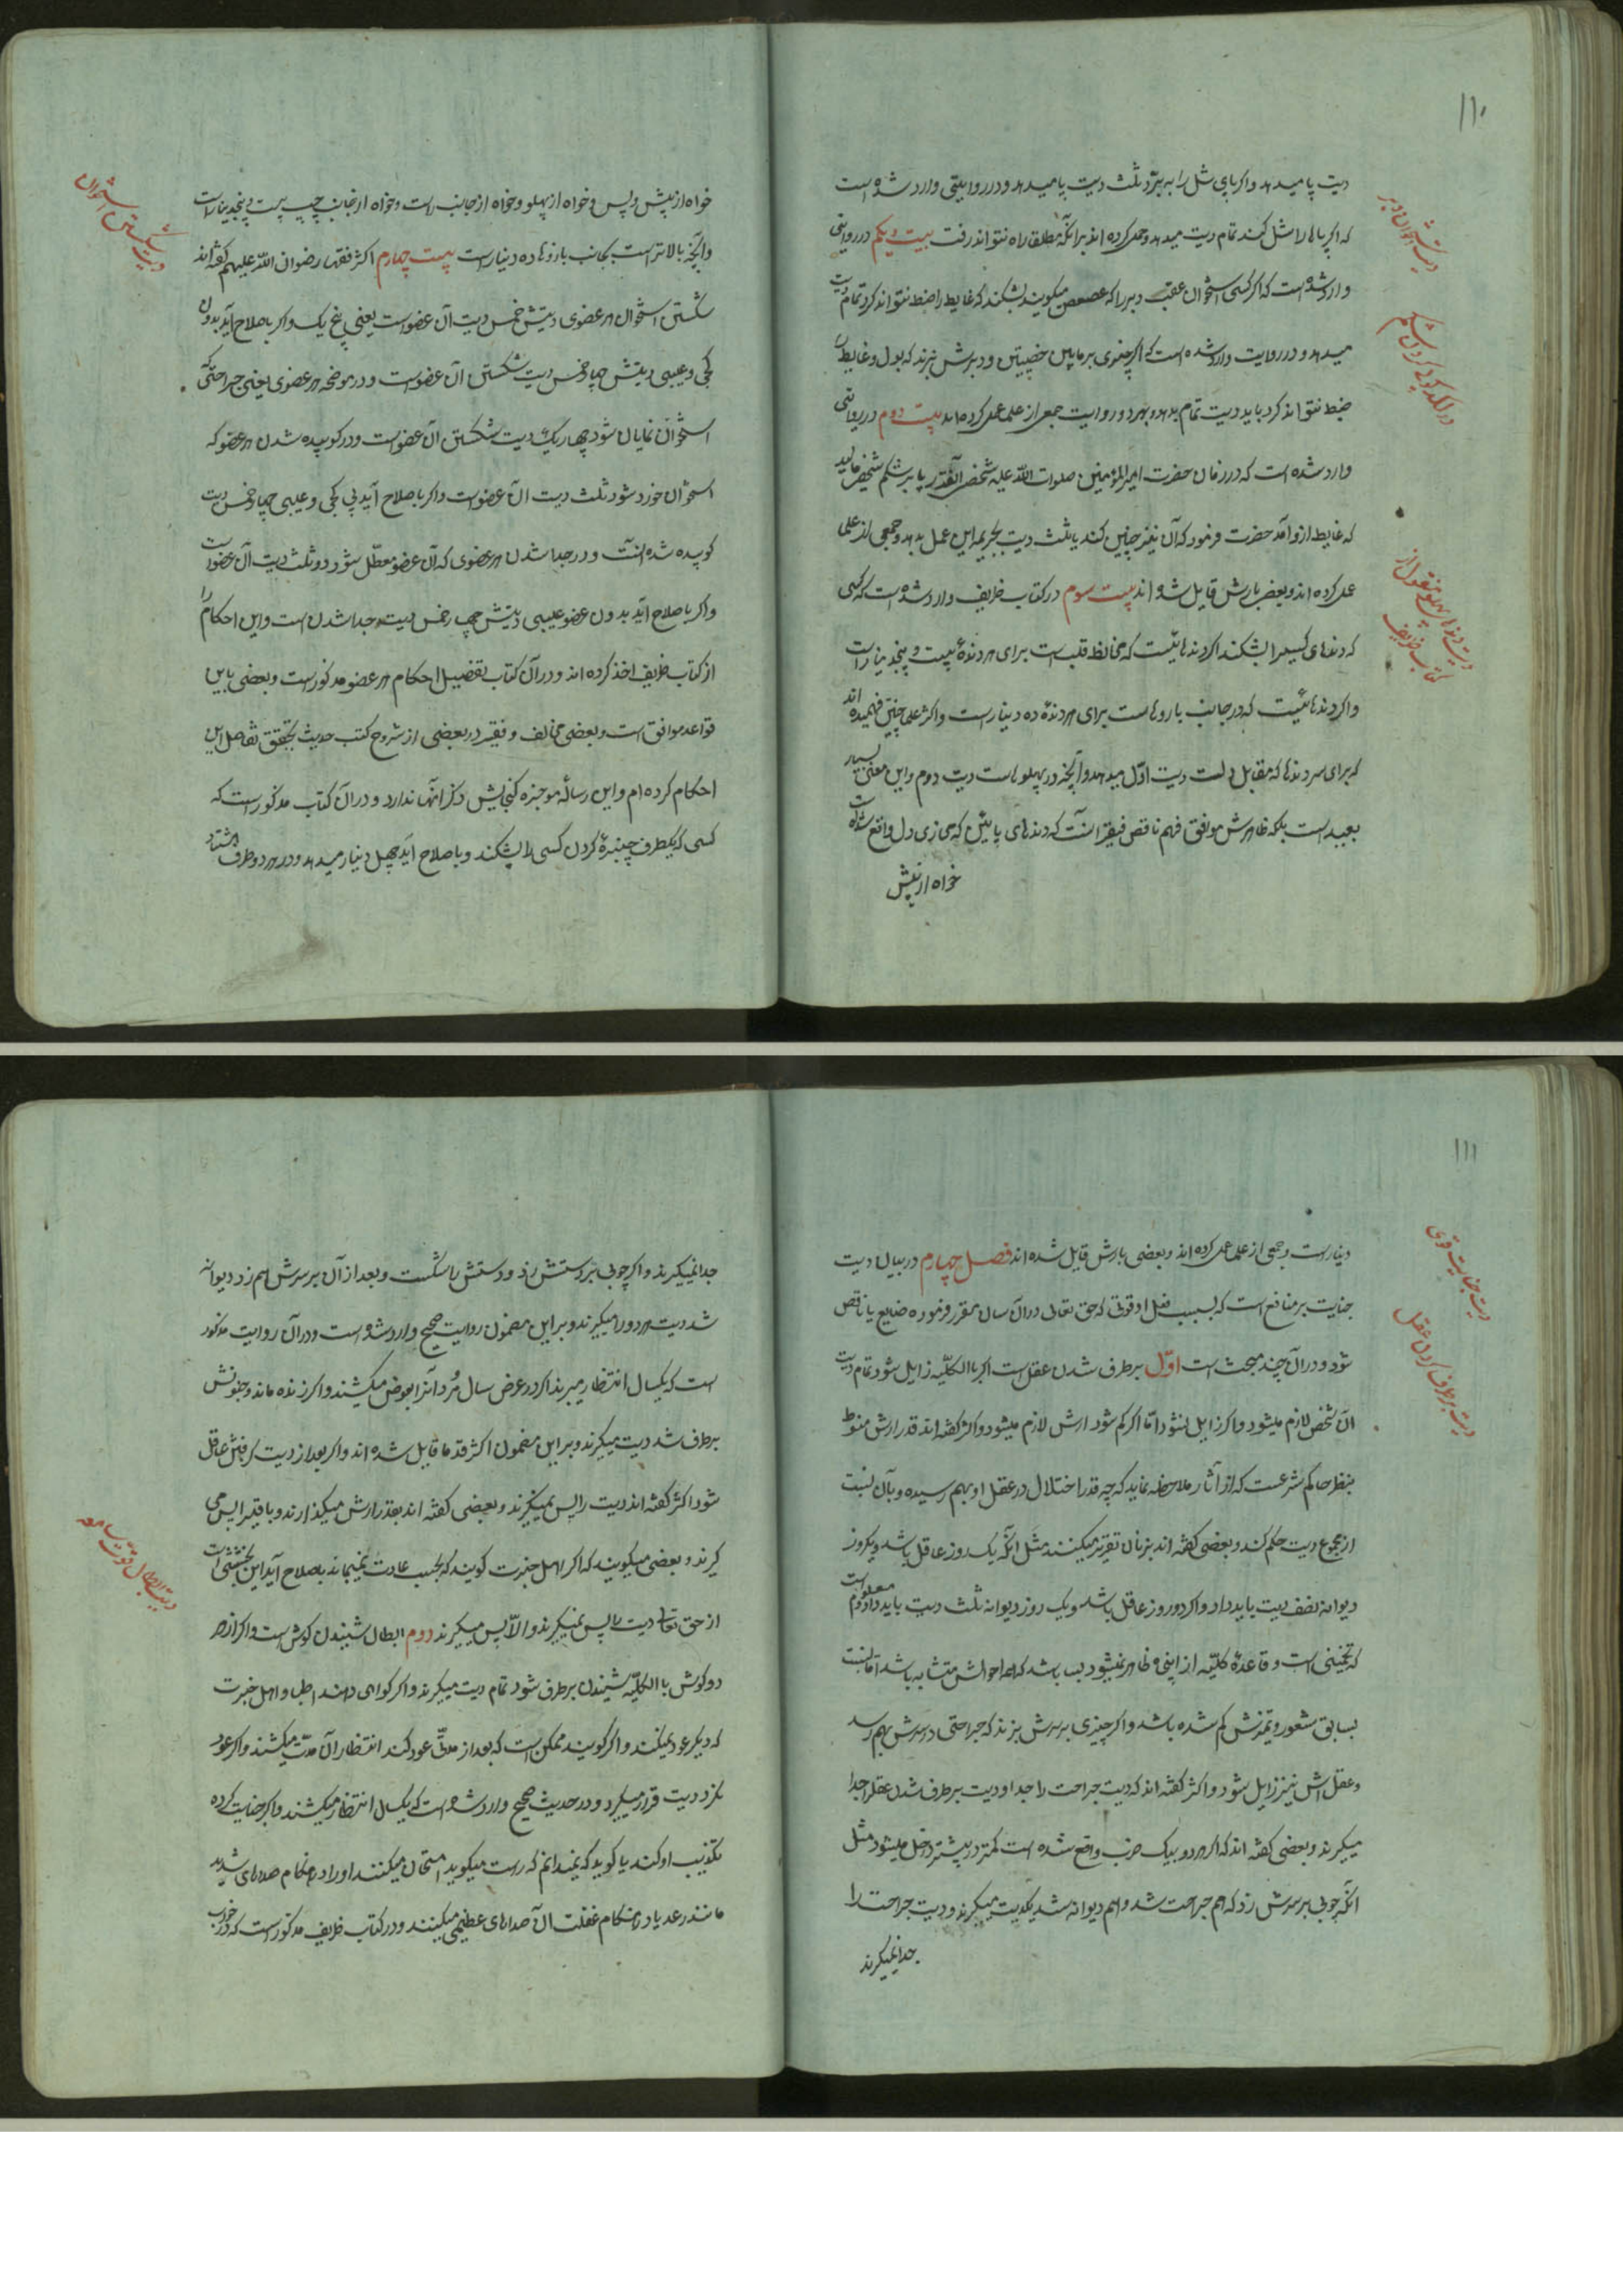 ۱۱۰
دیت پا میدهد و اکر پای شل را به برد ثلث دیت پا میدهد و در روایتی وارد شده است
که اکر پاها را شل کند تمام دیت میدهد و حمل کرده اند برانکه مطلقا راه نتواند رفت بیست و یکم در روایتی
وارد شده است که اکر کسی استخوان عقب دبر را که عصعص میکویند بشکند که غایط را ضبط نتواند کرد تمام دیت
میدهد و در روایت وارد شده است که اکر چیزی بر مابین خصیتین و دبرش بزند که بول و غایط را
ضبط نتواند کرد باید دیت تمام بدهد و بهر دو روایت جمعی از علما عمل کرده اند بیست دوم در روایتی
وارد شده است که در زمان حضرت امیرالمؤمنین صلوات اللّه علیه شخصی آنقدر پا بر شکم شخصی مالید
که غایط از او آمد حضرت فرمود که آن نیز چنین کند یا ثلث دیت بجریمه این عمل بدهد و جمعی از علما
عمل کرده اند و بعضی بارش قایل شده اند بیست سوم در کتاب ظریف وارد شده است که کسی
که دندهای کسیرا بشکند اکر دندهائیست که محافظ قلب است برای هر دندۀ بیست و پنجدینار است
و اکر دندهائیست که در جانب بازوهاست برای هر دندۀ ده دینار است و اکثر علما چنین فهمیده اند
که برای سر دندها که مقابل دلست دیت اوّل میدهد و آنچه در پهلوهاست دیت دوم و این معنی بسیار
بعیدست بلکه ظاهرش موافق فهم ناقص فقیر آنست که دندهای پائین که محاذی دل واقع شده است
خواه از پیش
دیت شکستن استخوان دبر
در لکدکوب کردن شکم
دیت دندهای پهلو منقول از
کتاب ظریف
خواه از پیش و پس و خواه از پهلو و خواه از جانب راست و خواه از جانب چپ بیست و پنجدینار است
و آنچه بالاتر است بجانب بازوها ده دینار است بیست چهارم اکثر فقها رضوان اللّه علیهم کفته اند
شکستن استخوان هر عضوی دیتش خمس دیت آن عضو است یعنی پنج یک و اکر باصلاح آید بدون
کجی و عیبی دیتش چهار خمس دیت شکستن آن عضو است و در موضحه هر عضوی یعنی جراحتی که
استخوان نمایان شود چهار یک دیت شکستن آن عضو است و در کوبیده شدن هر عضو که
استخوان خورد شود ثلث دیت آن عضو است و اکر باصلاح آید بی کجی و عیبی چهار خمس دیت
کوبیده شدنست و در جدا شدن هر عضوی که آن عضو معطّل شود دو ثلث دیت آن عضو است
و اکر باصلاح آید بدون عیبی دیتش چهار خمس دیت جدا شدن است و این احکام را
از کتاب ظریف اخذ کرده اند و در آن کتاب تفضیل احکام هر عضو مذکور است و بعضی باین
قواعد موافق است و بعضی مخالف و فقیر در بعضی از شروح کتب حدیث تحقیق تفاصیل این
احکام کرده ام و این رسالۀ موجزه کنجایش ذکر آنها ندارد و در آن کتاب مذکور است که
کسی که یکطرف چنبرۀ کردن کسی را بشکند و باصلاح آید چهل دینار میدهد و در هر دو طرف هشتاد
دیت شکستن استخوان
۱۱۱
دینار است و جمعی از علما عمل کرده اند و بعضی بارش قایل شده اند فصل چهارم در بیان دیت
جنایت بر منافع است که بسبب فعل او قوتی که حق تعالی در آن سان مقرر فرموده ضایع یا ناقص
شود و در آن چند مبحث است اوّل برطرف شدن عقل است اکر باالکلیّه زایل شود تمام دیت
آن شخص لازم میشود و اکر زایل نشود امّا اکر کم شود ارش لازم میشود و اکثر کفته اند قدر ارش منوط
بنظر حاکم شرعست که از آثار ملاحظه نماید که چه قدر اختلال در عقل او بهم رسیده و بآن نسبت
از مجموع دیت حکم کند و بعضی کفته اند بزمان تقریر میکنند مثل انکه یک روز عاقل باشد و یکروز
دیوانه نصف دیت باید داد و اکر دو روز عاقل باشد و یک روز دیوانه ثلث دیت باید داد و معلوم است
که تخمینی است و قاعدۀ کلیّه از این ظاهر نمیشود بسا باشد که همه احوالش متشابه باشد امّا نسبت
بسابق شعور و تمیزش کم شده باشد و اکر چیزی بر سرش بزند که جراحتی در سرش بهم رسد
و عقل اش نیز زایل شود و اکثر کفته اند که دیت جراحت را جدا و دیت برطرف شدن عقل را جدا
میکیرند و بعضی کفته اند که اکر هر دو بیک ضرب واقع شده است کمتر در بیشتر داخل میشود مثل
انکه چوبی بر سرش زد که هم جراحت شد و هم دیوانه شد یکدیت میکیرند و دیت جراحت را
جدا نمیکیرند
دیت جنایت قوی
دیت برطرف کردن عقل
جدا نمیکیرند و اکر چوبی بر دستش زد و دستش را شکست و بعد از آن بر سرش هم زد دیوانه
شد دیت هر دو را میکیرند و بر این مضمون روایت صحیح وارد شده است و در آن روایت مذکور
است که یکسال انتظار میبرند اکر در عرض سال مُرد آنرا بعوض میکشند و اکر زنده ماند و جنونش
برطرف شد دیت میکیرند و بر این مضمون اکثر قدما قایل شده اند و اکر بعد از دیت کرفتن عاقل
شود اکثر کفته اند دیت را پس نمیکیرند و بعضی کفته اند بقدر ارش میکذارند و باقی را پس می
کیرند و بعضی میکویند که اکر اهل خبرت کویند که بحسب عادت نمیباید باصلاح آید این بخششی است
از حق تعالی دیت را پس نمیکیرند و الّا پس میکیرند دوم ابطال شنیدن کوش است و اکر از هر
دو کوش باالکلیّه شنیدن برطرف شود تمام دیت میکیرند و اکر کواهی دهند اطبا و اهل خبرت
که دیکر عود نمیکند و اکر کویند ممکن است که بعد از مدّتی عود کند انتظار آن مدّت میکشند و اکر عود
نکرد دیت قرار میکیرد و در حدیث صحیح وارد شده است که یکسال انتظار میکشند و اکر جنایت کرده
تکذیب او کند یا کوید که نمیدانم که راست میکوید امتحان میکنند او را در هنکام صداهای شدید
مانند رعد یا در هنکام غفلت آن صداهای عظیمی میکنند و در کتاب ظریف مذکور است که در خواب
دیت ابطال قوّت سامعه